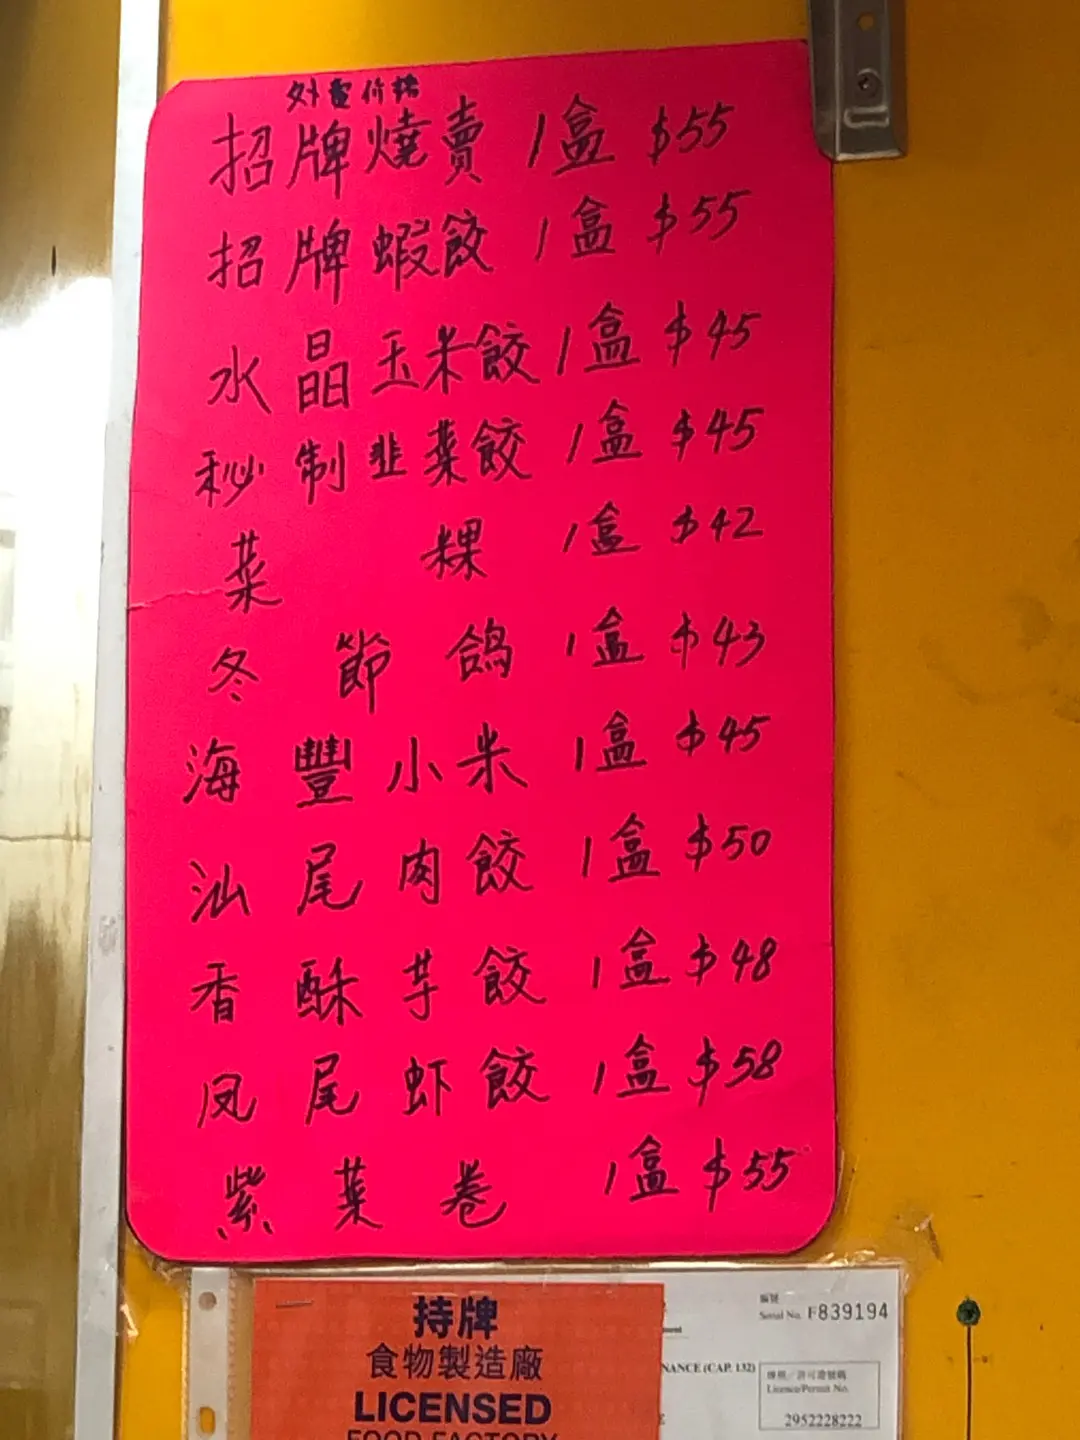 外賣价格
招牌燒賣 1盒 $55
招牌蝦餃 1盒 $55
水晶玉米餃 1盒 $45
秘制韭菜餃 1盒 $45
菜粿 1盒 $42
冬節鴿 1盒 $43
海豐小米 1盒 $45
汕尾肉餃 1盒 $50
香酥芋餃 1盒 $48
凤尾虾餃 1盒 $58
紫菜卷 1盒 $55
持牌
食物製造廠
LICENSED
FOOD FACTORY
編號
Serial No. F839194
NANCE (CAP. 132)
牌照／許可證號碼
Licence/Permit No.
2952228222